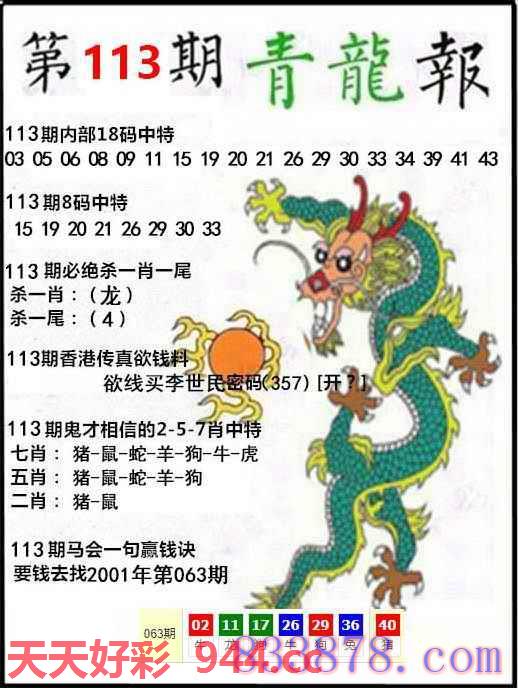 第113期青龍報
113期内部18码中特
03 05 06 08 09 11 15 19 20 21 26 29 30 33 34 39 41 43
113期8码中特
15 19 20 21 26 29 30 33
113期必绝杀一肖一尾
杀一肖：（龙）
杀一尾：（4）
113期香港传真欲钱料
欲线买李世民密码(357) [开？]
113期鬼才相信的2-5-7肖中特
七肖： 猪-鼠-蛇-羊-狗-牛-虎
五肖： 猪-鼠-蛇-羊-狗
二肖： 猪-鼠
113期马会一句赢钱诀
要钱去找2001年第063期
063期 02 11 17 26 29 36 40
牛 龙 狗 兔 猪
天天好彩 944.cc
833878.com